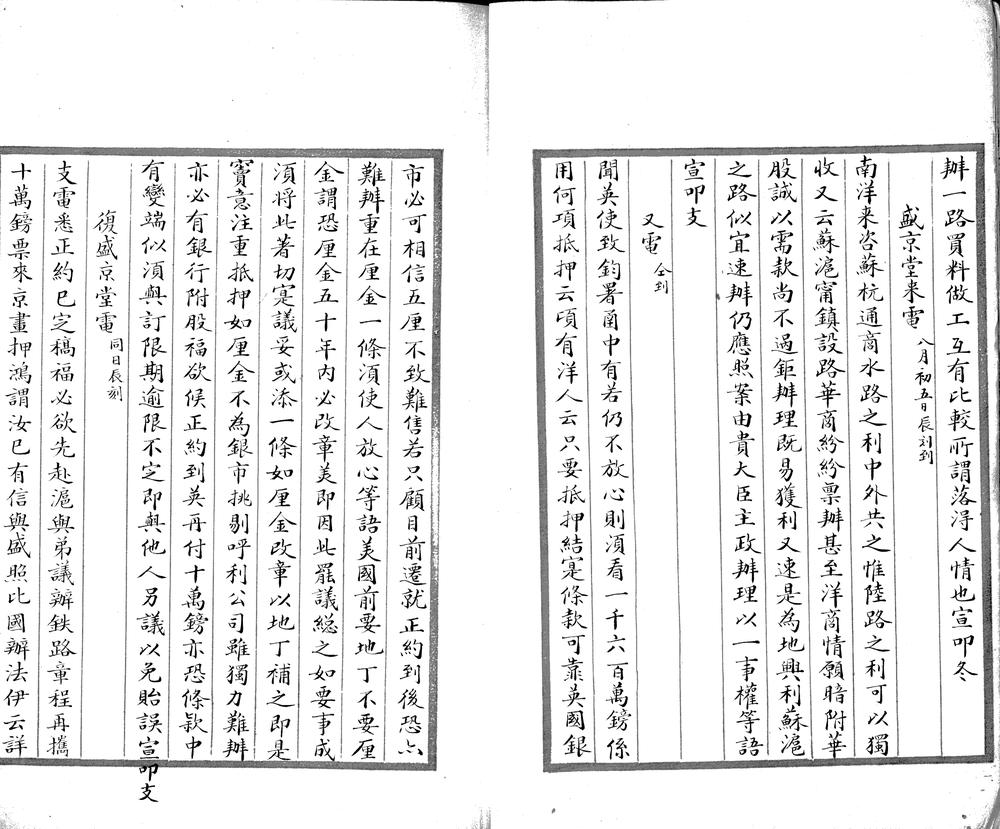 辦一路買料做工互有比較所謂落得人情也宣叩冬
盛京堂来電 八月初五日辰刻到
南洋来咨蘇杭通商水路之利中外共之惟陸路之利可以獨
收又云蘇滬甯鎮設路華商紛紛稟辦甚至洋商情願暗附華
股誠以需款尚不過鉅辦理既易獲利又速是為地興利蘇滬
之路似宜速辦仍應照案由貴大臣主政辦理以一事權等語
宣叩支
又電 仝到
聞英使致鈞署圅中有若仍不放心則須看一千六百萬鎊係
用何項抵押云頃有洋人云只要抵押結寔條款可靠英國銀
市必可相信五厘不致難售若只顧目前遷就正約到後恐亦
難辦重在厘金一條須使人放心等語美國前要地丁不要厘
金謂恐厘金五十年內必改章美即因此罷議縂之如要事成
須將此著切寔議妥或添一條如厘金改章以地丁補之即是
竇意注重抵押如厘金不為銀市挑剔呼利公司雖獨力難辦
亦必有銀行附股福欲候正約到英再付十萬鎊亦恐條款中
有變端似須與訂限期逾限不定即與他人另議以免貽誤宣叩支
復盛京堂電 同日辰刻
支電悉正約已定稿福必欲先赴滬與弟議辦鉄路章程再攜
十萬鎊票來京畫押鴻謂汝已有信與盛照比國辦法伊云詳